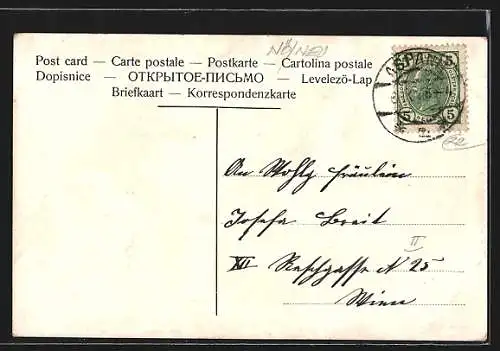 Post card — Carte postale — Postkarte — Cartolina postale
Dopisnice — ОТКРЫТОЕ-ПИСЬМО — Levelező-Lap
Briefkaart — Korrespondenzkarte
ASPANG
5 5
An Wohlg Fräulein
Josefa Breit
XII
II
N 25
Wien